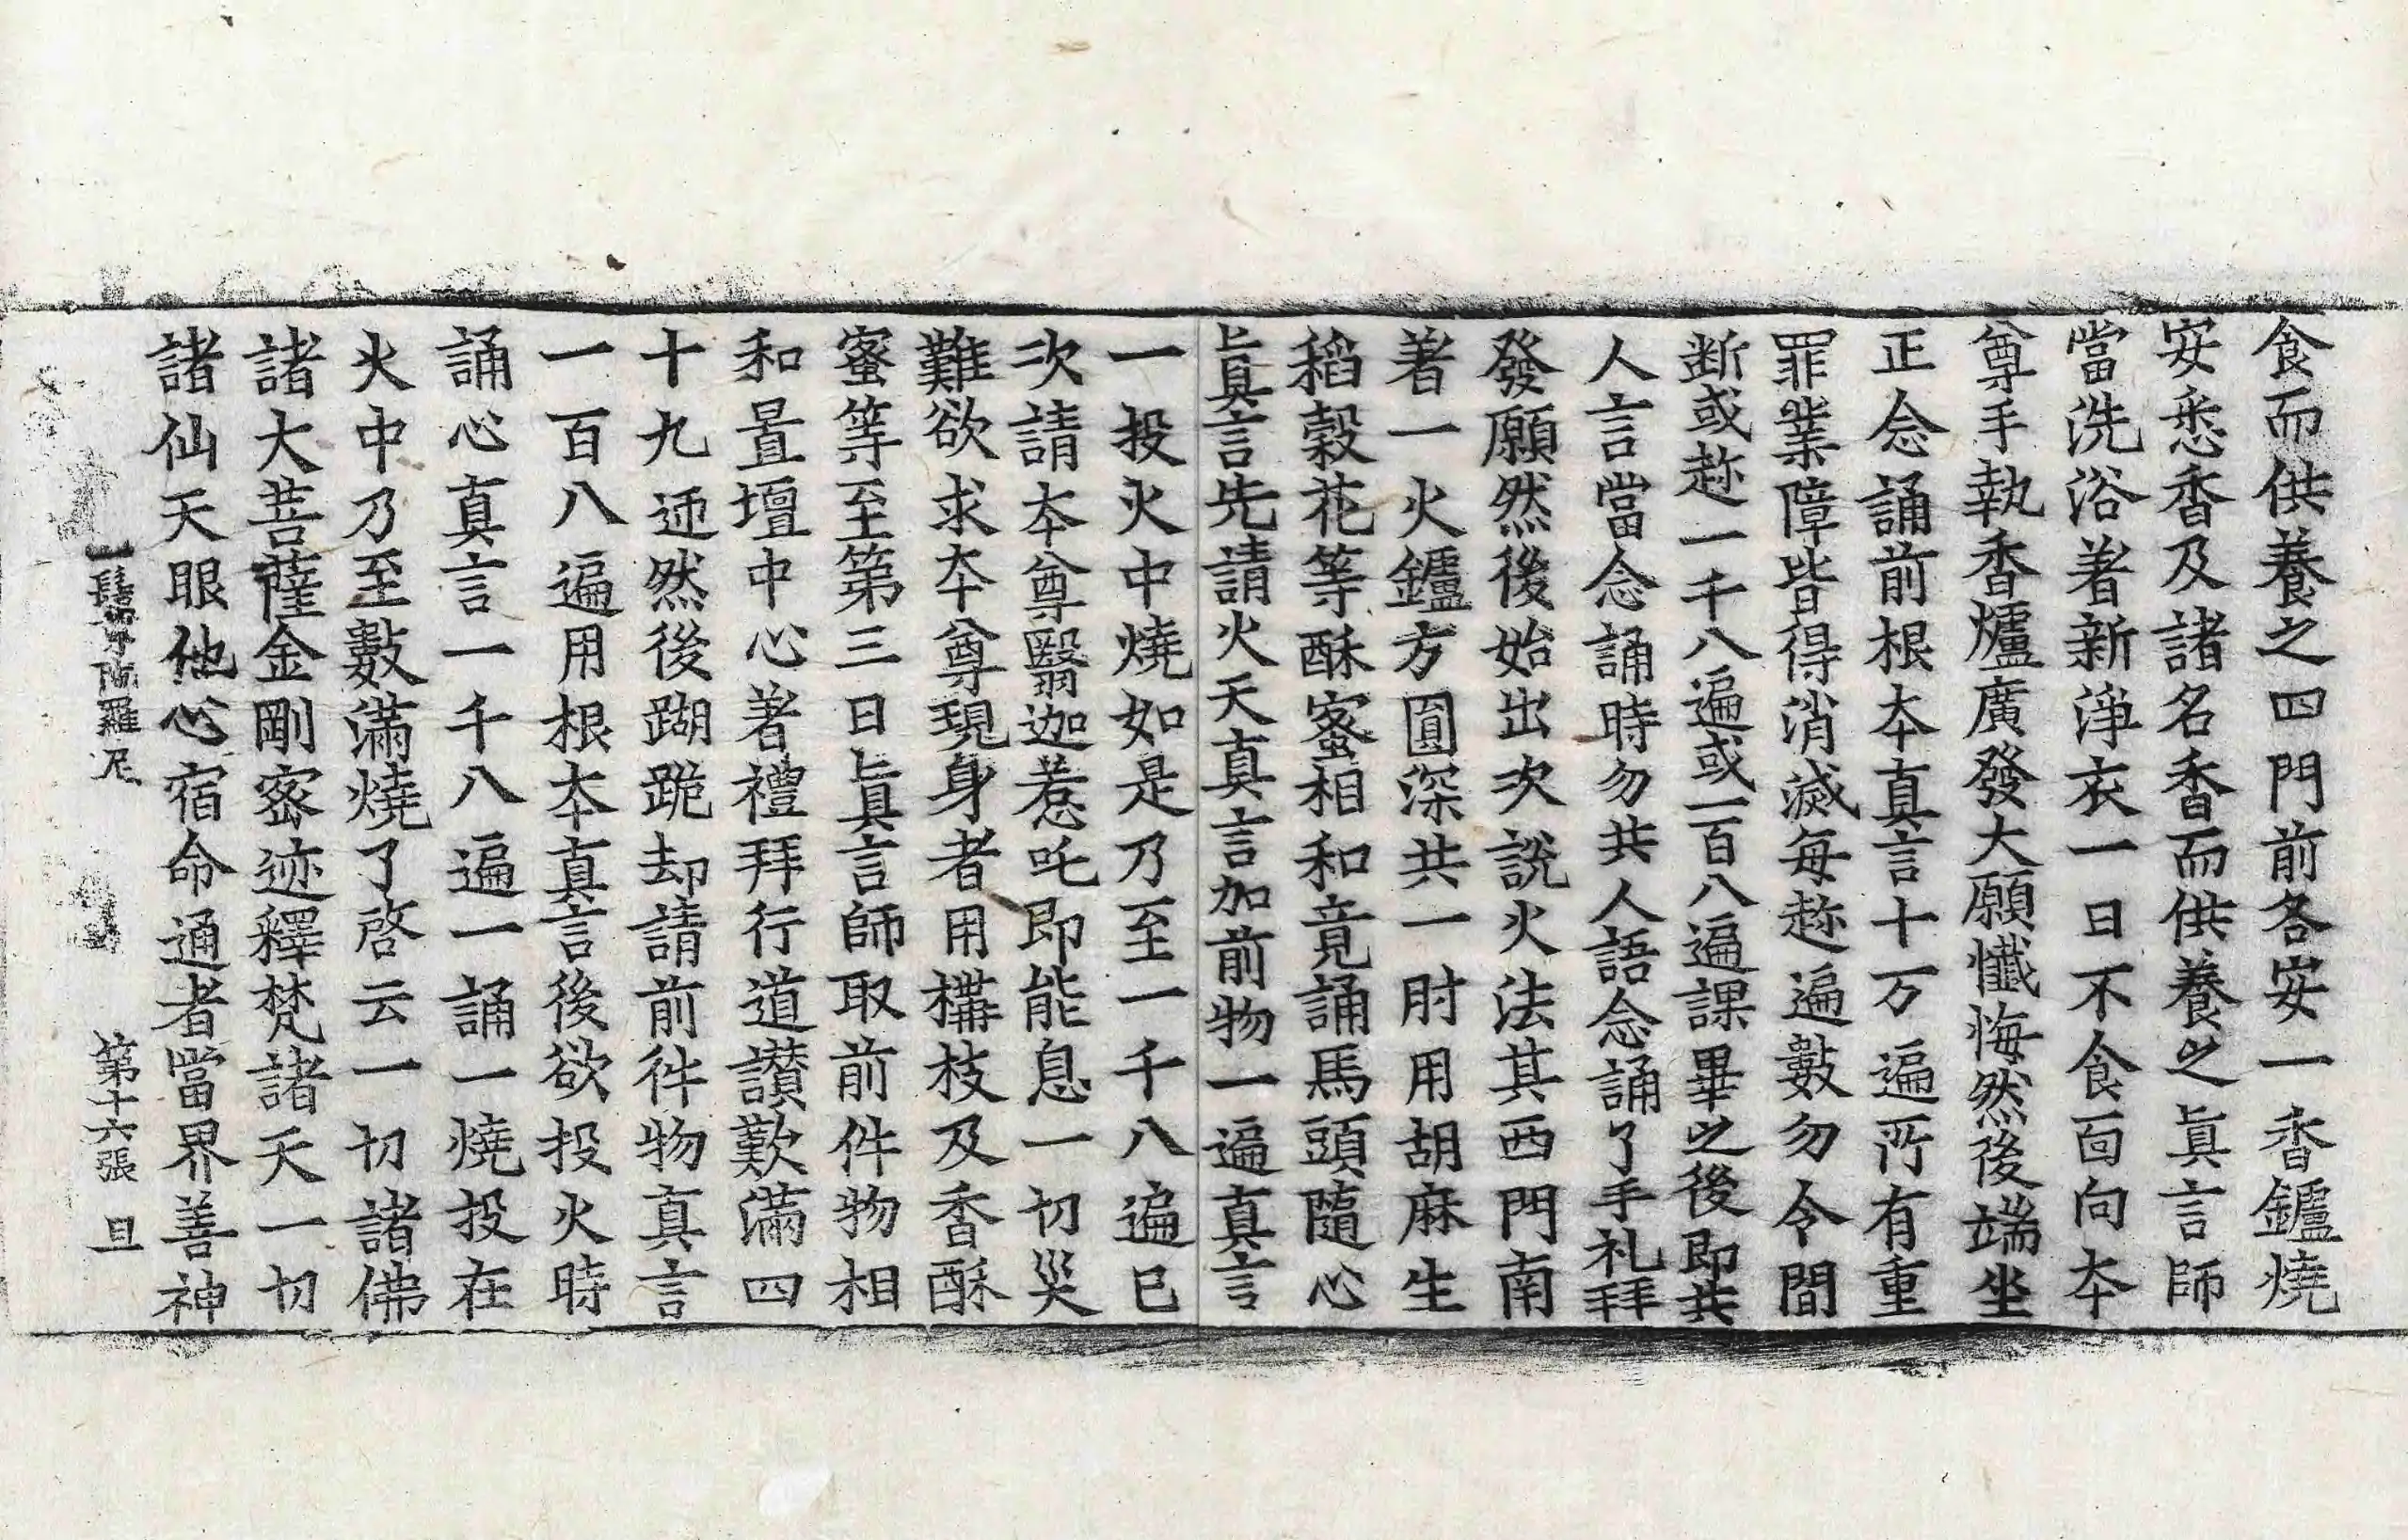 食而供養之四門前各安一香鑪燒
安悉香及諸名香而供養之眞言師
當洗浴著新淨衣一日不食面向夲
尊手執香爐廣發大願懺悔然後端坐
正念誦前根夲真言十万遍所有重
罪業障皆得消滅每趂遍數勿令間
断或趂一千八遍或一百八遍課畢之後即共
人言當念誦時勿共人語念誦了手礼拜
發願然後始出次說火法其西門南
著一火鑪方圓深共一肘用胡麻生
稻穀花等酥蜜相和竟誦馬頭隨心
眞言先請火天真言加前物一遍真言
一投火中燒如是乃至一千八遍已
次請夲尊翳迦惹吒即能息一切災
難欲求夲尊現身者用構枝及香酥
蜜等至第三日眞言師取前件物相
和置壇中心著禮拜行道讃歎滿四
十九迊然後蹦跪却請前件物真言
一百八遍用根夲真言後欲投火時
誦心真言一千八遍一誦一燒投在
火中乃至數滿燒了啓云一切諸佛
諸大菩薩金剛密迹釋梵諸天一切
諸仙天眼他心宿命通者當界善神
一髻尊陁羅尼 第十六張 旦